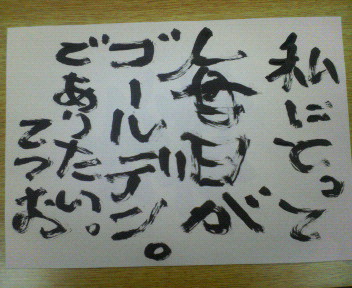 私にとって
毎日が
ゴールデン。
でありたい。
てつお